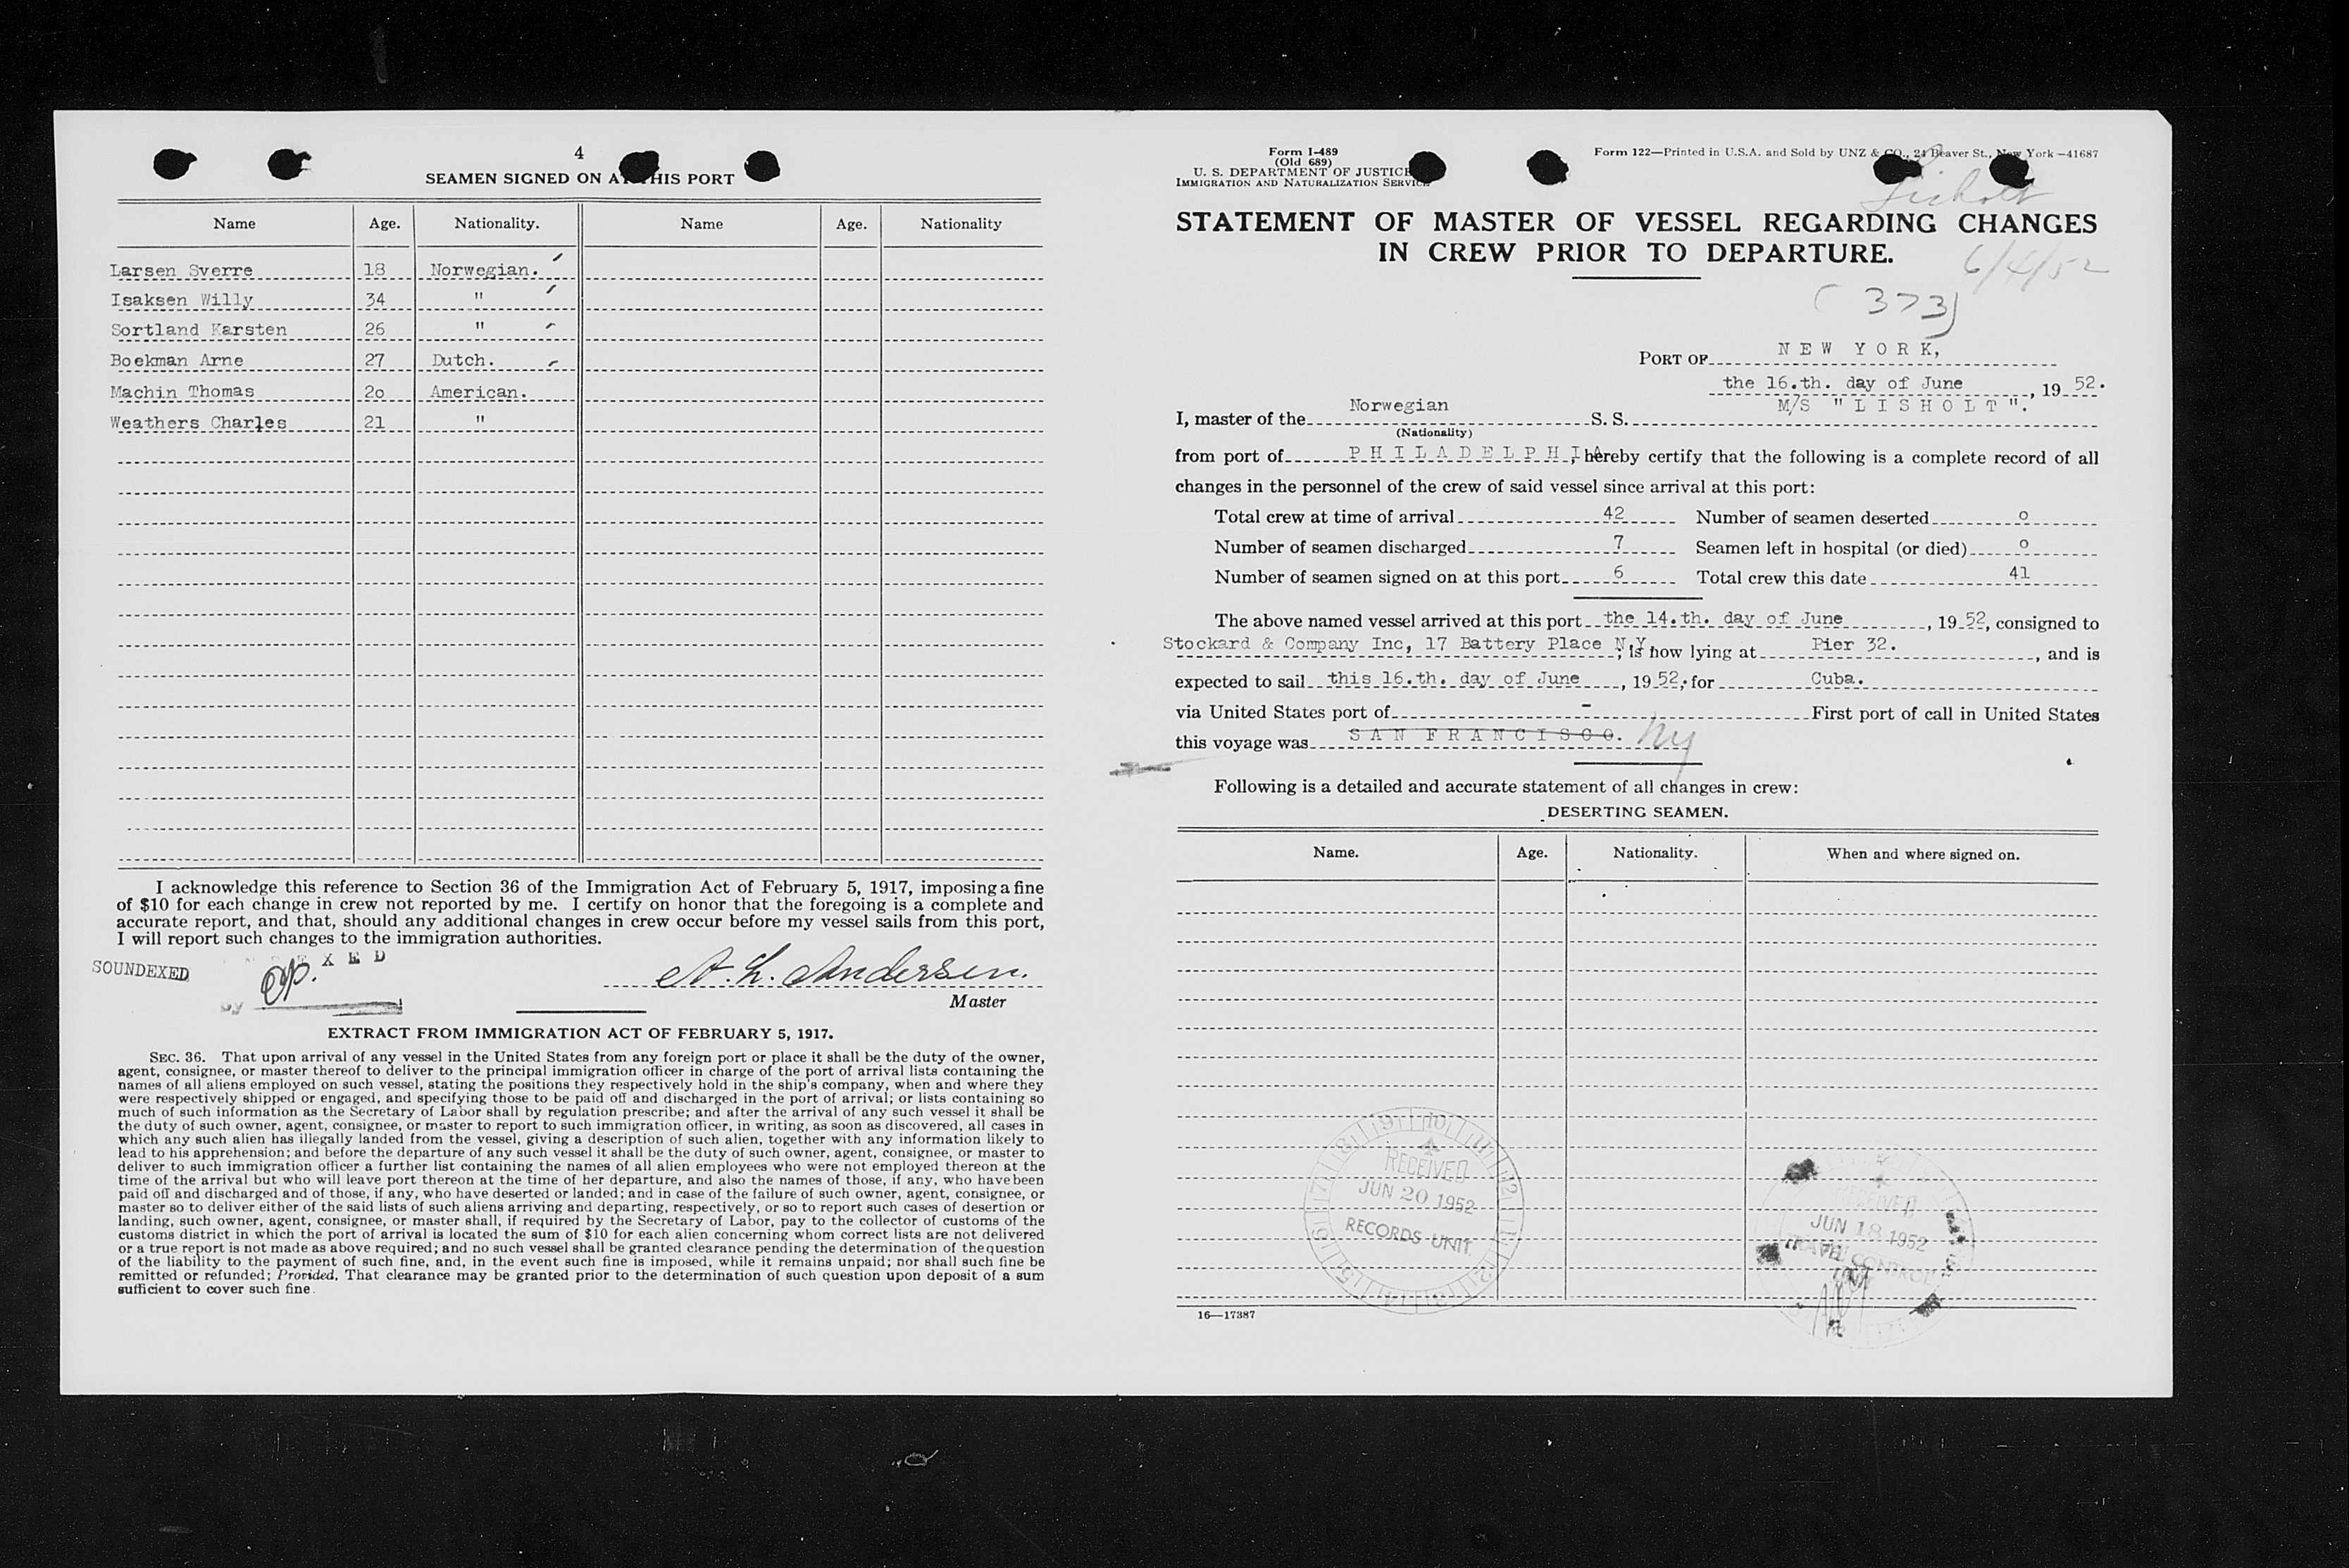 4
SEAMEN SIGNED ON AT THIS PORT
Name Age. Nationality. Name Age. Nationality
Larsen Sverre 18 Norwegian.
Isaksen Willy 34 "
Sortland Karsten 26 "
Boekman Arne 27 Dutch.
Machin Thomas 2o American.
Weathers Charles 21 "
I acknowledge this reference to Section 36 of the Immigration Act of February 5, 1917, imposing a fine
of $10 for each change in crew not reported by me. I certify on honor that the foregoing is a complete and
accurate report, and that, should any additional changes in crew occur before my vessel sails from this port,
I will report such changes to the immigration authorities.
SOUNDEXED
X E D
By
A. L. Andersen.
Master
EXTRACT FROM IMMIGRATION ACT OF FEBRUARY 5, 1917.
SEC. 36. That upon arrival of any vessel in the United States from any foreign port or place it shall be the duty of the owner,
agent, consignee, or master thereof to deliver to the principal immigration officer in charge of the port of arrival lists containing the
names of all aliens employed on such vessel, stating the positions they respectively hold in the ship's company, when and where they
were respectively shipped or engaged, and specifying those to be paid off and discharged in the port of arrival; or lists containing so
much of such information as the Secretary of Labor shall by regulation prescribe; and after the arrival of any such vessel it shall be
the duty of such owner, agent, consignee, or master to report to such immigration officer, in writing, as soon as discovered, all cases in
which any such alien has illegally landed from the vessel, giving a description of such alien, together with any information likely to
lead to his apprehension; and before the departure of any such vessel it shall be the duty of such owner, agent, consignee, or master to
deliver to such immigration officer a further list containing the names of all alien employees who were not employed thereon at the
time of the arrival but who will leave port thereon at the time of her departure, and also the names of those, if any, who have been
paid off and discharged and of those, if any, who have deserted or landed; and in case of the failure of such owner, agent, consignee, or
master so to deliver either of the said lists of such aliens arriving and departing, respectively, or so to report such cases of desertion or
landing, such owner, agent, consignee, or master shall, if required by the Secretary of Labor, pay to the collector of customs of the
customs district in which the port of arrival is located the sum of $10 for each alien concerning whom correct lists are not delivered
or a true report is not made as above required; and no such vessel shall be granted clearance pending the determination of the question
of the liability to the payment of such fine, and, in the event such fine is imposed, while it remains unpaid; nor shall such fine be
remitted or refunded; Provided, That clearance may be granted prior to the determination of such question upon deposit of a sum
sufficient to cover such fine.
Form I-489
(Old 689)
U. S. DEPARTMENT OF JUSTICE
IMMIGRATION AND NATURALIZATION SERVICE
Form 122—Printed in U.S.A. and Sold by UNZ & CO., 24 Beaver St., New York—41687
Lisholt
STATEMENT OF MASTER OF VESSEL REGARDING CHANGES
IN CREW PRIOR TO DEPARTURE.
6/4/52
(373)
PORT OF NEW YORK,
the 16.th. day of June, 19 52.
I, master of the Norwegian S. S. M/S "LISHOLT".
(Nationality)
from port of PHILADELPHIA, hereby certify that the following is a complete record of all
changes in the personnel of the crew of said vessel since arrival at this port:
Total crew at time of arrival 42 Number of seamen deserted o
Number of seamen discharged 7 Seamen left in hospital (or died) o
Number of seamen signed on at this port 6 Total crew this date 41
The above named vessel arrived at this port the 14.th. day of June, 19 52, consigned to
Stockard & Company Inc, 17 Battery Place N.Y., is now lying at Pier 32., and is
expected to sail this 16.th. day of June, 19 52, for Cuba.
via United States port of - First port of call in United States
this voyage was SAN FRANCISCO. Ny
Following is a detailed and accurate statement of all changes in crew:
DESERTING SEAMEN.
Name. Age. Nationality. When and where signed on.
RECEIVED
JUN 20 1952
RECORDS UNIT
RECEIVED
JUN 18 1952
TRAVEL CONTROL
16—17387